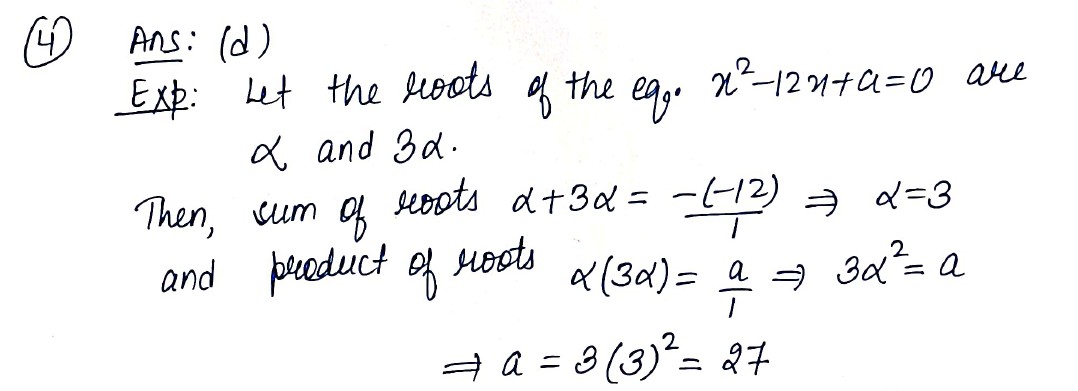 ④ Ans: (d)
Exp: Let the roots of the eqⁿ. x²-12x+a=0 are
α and 3α.
Then, sum of roots α+3α = -(-12)/1 ⇒ α=3
and product of roots α(3α) = a/1 ⇒ 3α² = a
⇒ a = 3(3)² = 27